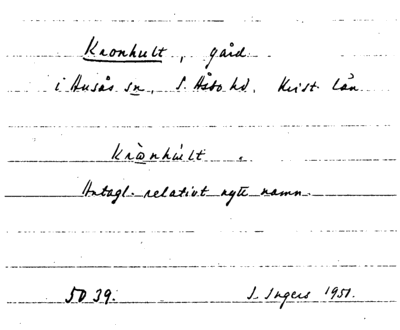 Kronhult, gård
i Husås sn, S. Åsbo hd. Krist. län
Krònhúlt.
Antagl. relativt nytt namn.
5D 39. I. Ingers 1951.